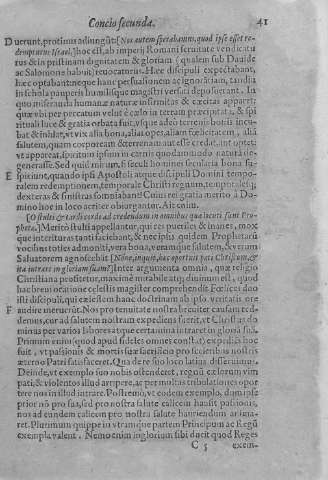 Concio secunda. 41
D uerunt, protinus adiungũt: [Nos autem sperabamus, quod ipse esset re-
dempturus Israel,] hoc est, ab imperij Romani seruitute vendicatu
rus & in pristinam dignitatem & gloriam (qualem sub Dauide
ac Salomone habuit) reuocaturus. Hæc discipuli expectabant,
hæc optabant: neque hanc persuasionem ac ignorátiam, tandiu
in schola pauperis humilisque magistri versati deposuerant. In
quo miseranda humanæ naturæ infirmitas & cæcitas apparet:
quæ vbi per peccatum velut è cœlo in terram præcipitata, & spi
rituali luce & gratia orbata fuit, vsque adeo terrenis bonis incu-
bat & inhiat, vt vix alia bona, alias opes, aliam fœlicitatem, aliã
salutem, quam corpoream & terrenam aut esse credat, aut optet:
vt appareat, spiritum ipsum in carnis quodammodo naturã de-
generasse. Sed quid mirum, si seculi homines secularia bona su-
E spiciunt, quando ipsi Apostoli atque discipuli Domini tempo-
ralem redemptionem, temporale Christi regnum, temporaleśq;
dexteras & sinistras somniabant? Cuius rei gratia merito à Do-
mino hoc in loco acriter obiurgantur. Ait enim.
[O stulti & tardi corde ad credendum in omnibus quæ locuti sunt Pro-
phetæ.] Merito stulti appellantur, qui res pueriles & inanes, mox
que interituras tanti faciebant, & nec ipsis quidem Prophetarũ
vocibus toties admoniti, vera bona, veramque salutem, & verum
Saluatorem agnoscebãt [Nónne, inquit, hæc oportuit pati Christum, &
ita intrare in gloriam suam?] Inter argumenta omnia, quæ religio
Christiana profitetur, maximè mirabile atq; diuinum est, quod
hac breui oratione cælestis magister comprehendit Fœlices duo
isti discipuli, qui cælestem hanc doctrinam ab ipso veritatis ore
F audire meruerũt. Nos pro tenuitate nostra breuiter causam red-
demus, cur ad salutem nostram expediens fuerit, vt Christus do
minus per varios labores atque certamina intraret in gloriã suã.
Primum enim (quod apud fideles omnes constat) expediés hoc
fuit, vt passionis & mortis suæ sacrificio pro sceleribus nostris
æterno Patri satisfaceret. Qua de re suo loco latius disseruimus.
Deinde, vt exemplo suo nobis ostenderet, regnũ cælorum vim
pati, & violentos illud arripere, ac per multas tribulationes opor
tere nos in illud intrare. Postremò, vt eodem exemplo, dum ipse
prior nõ pro sua, sed pro nostra salute calicem hausit passionis,
nos ad eundem calicem pro nostra salute hauriendum anima-
ret. Plurimum quippe in vtramque partem Principum ac Regũ
exempla valent. Nemo enim inglorium sibi ducit quod Reges
C 5 exem-